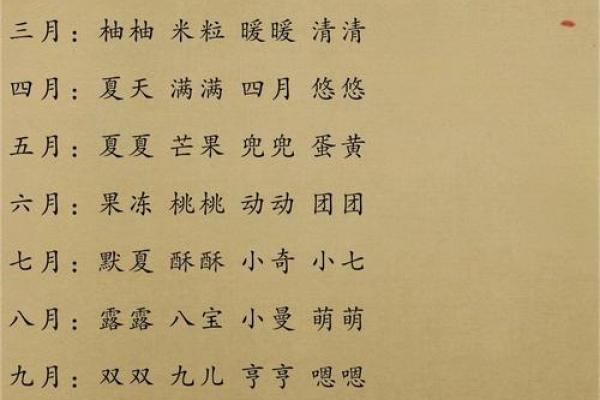 三月：柚柚 米粒 暖暖 清清
四月：夏天 满满 四月 悠悠
五月：夏夏 芒果 兜兜 蛋黄
六月：果冻 桃桃 动动 团团
七月：默夏 酥酥 小奇 小七
八月：露露 八宝 小曼 萌萌
九月：双双 九儿 亨亨 嗯嗯